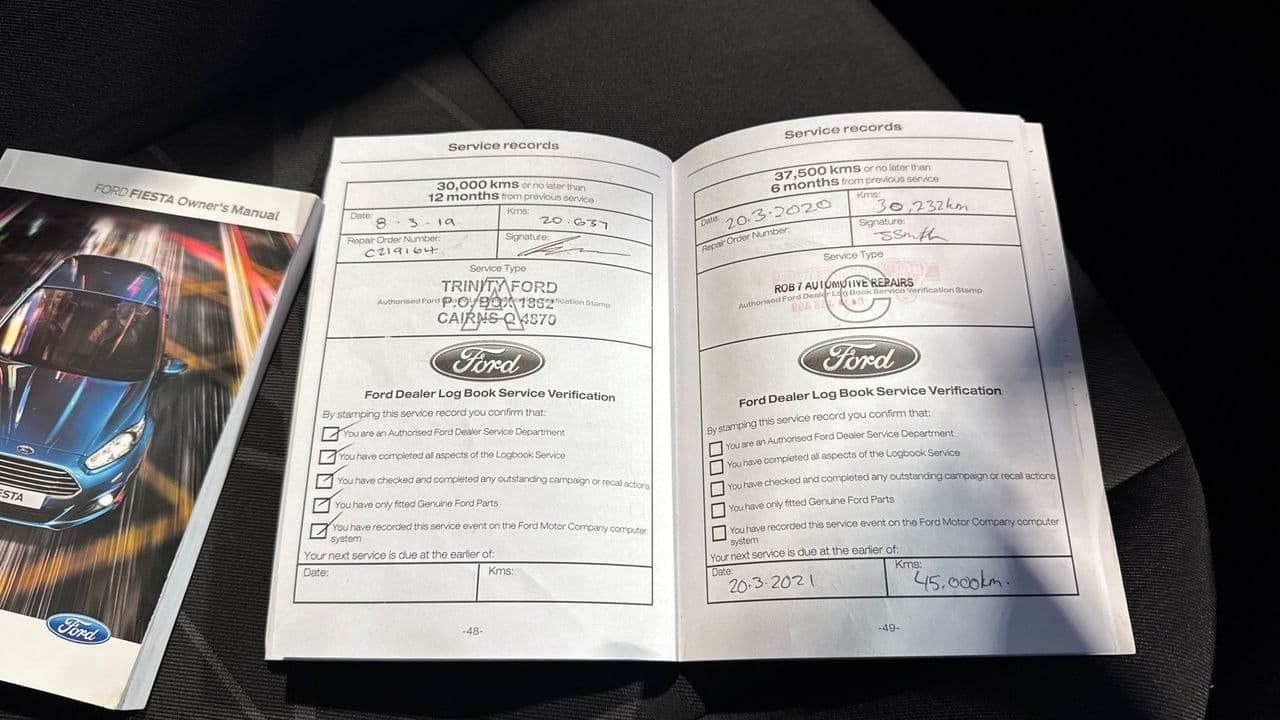 FORD FIESTA Owner's Manual
ESTA
Ford
Service records
30,000 kms or no later than
12 months from previous service
Date: 8.3.19
Kms: 20.637
Repair Order Number: C219164
Signature:
Service Type
A
TRINITY FORD
Authorised Ford Dealer Log Book Service Verification Stamp
P.O. BOX 1882
CAIRNS Q 4870
Ford
Ford Dealer Log Book Service Verification
By stamping this service record you confirm that:
You are an Authorised Ford Dealer Service Department
You have completed all aspects of the Logbook Service
You have checked and completed any outstanding campaign or recall actions
You have only fitted Genuine Ford Parts
You have recorded this service event on the Ford Motor Company computer
system
Your next service is due at the earlier of:
Date:
Kms:
-48-
Service records
37,500 kms or no later than
6 months from previous service
Date: 20.3.2020
Kms: 30,232km
Repair Order Number:
Signature: SSmith
Service Type
C
ROB 7 AUTOMOTIVE REPAIRS
Authorised Ford Dealer Log Book Service Verification Stamp
Ford
Ford Dealer Log Book Service Verification
By stamping this service record you confirm that:
You are an Authorised Ford Dealer Service Department
You have completed all aspects of the Logbook Service
You have checked and completed any outstanding campaign or recall actions
You have only fitted Genuine Ford Parts
You have recorded this service event on the Ford Motor Company computer
system
Your next service is due at the earlier of:
Date: 20.3.2021
Kms: 45,000km.
-49-